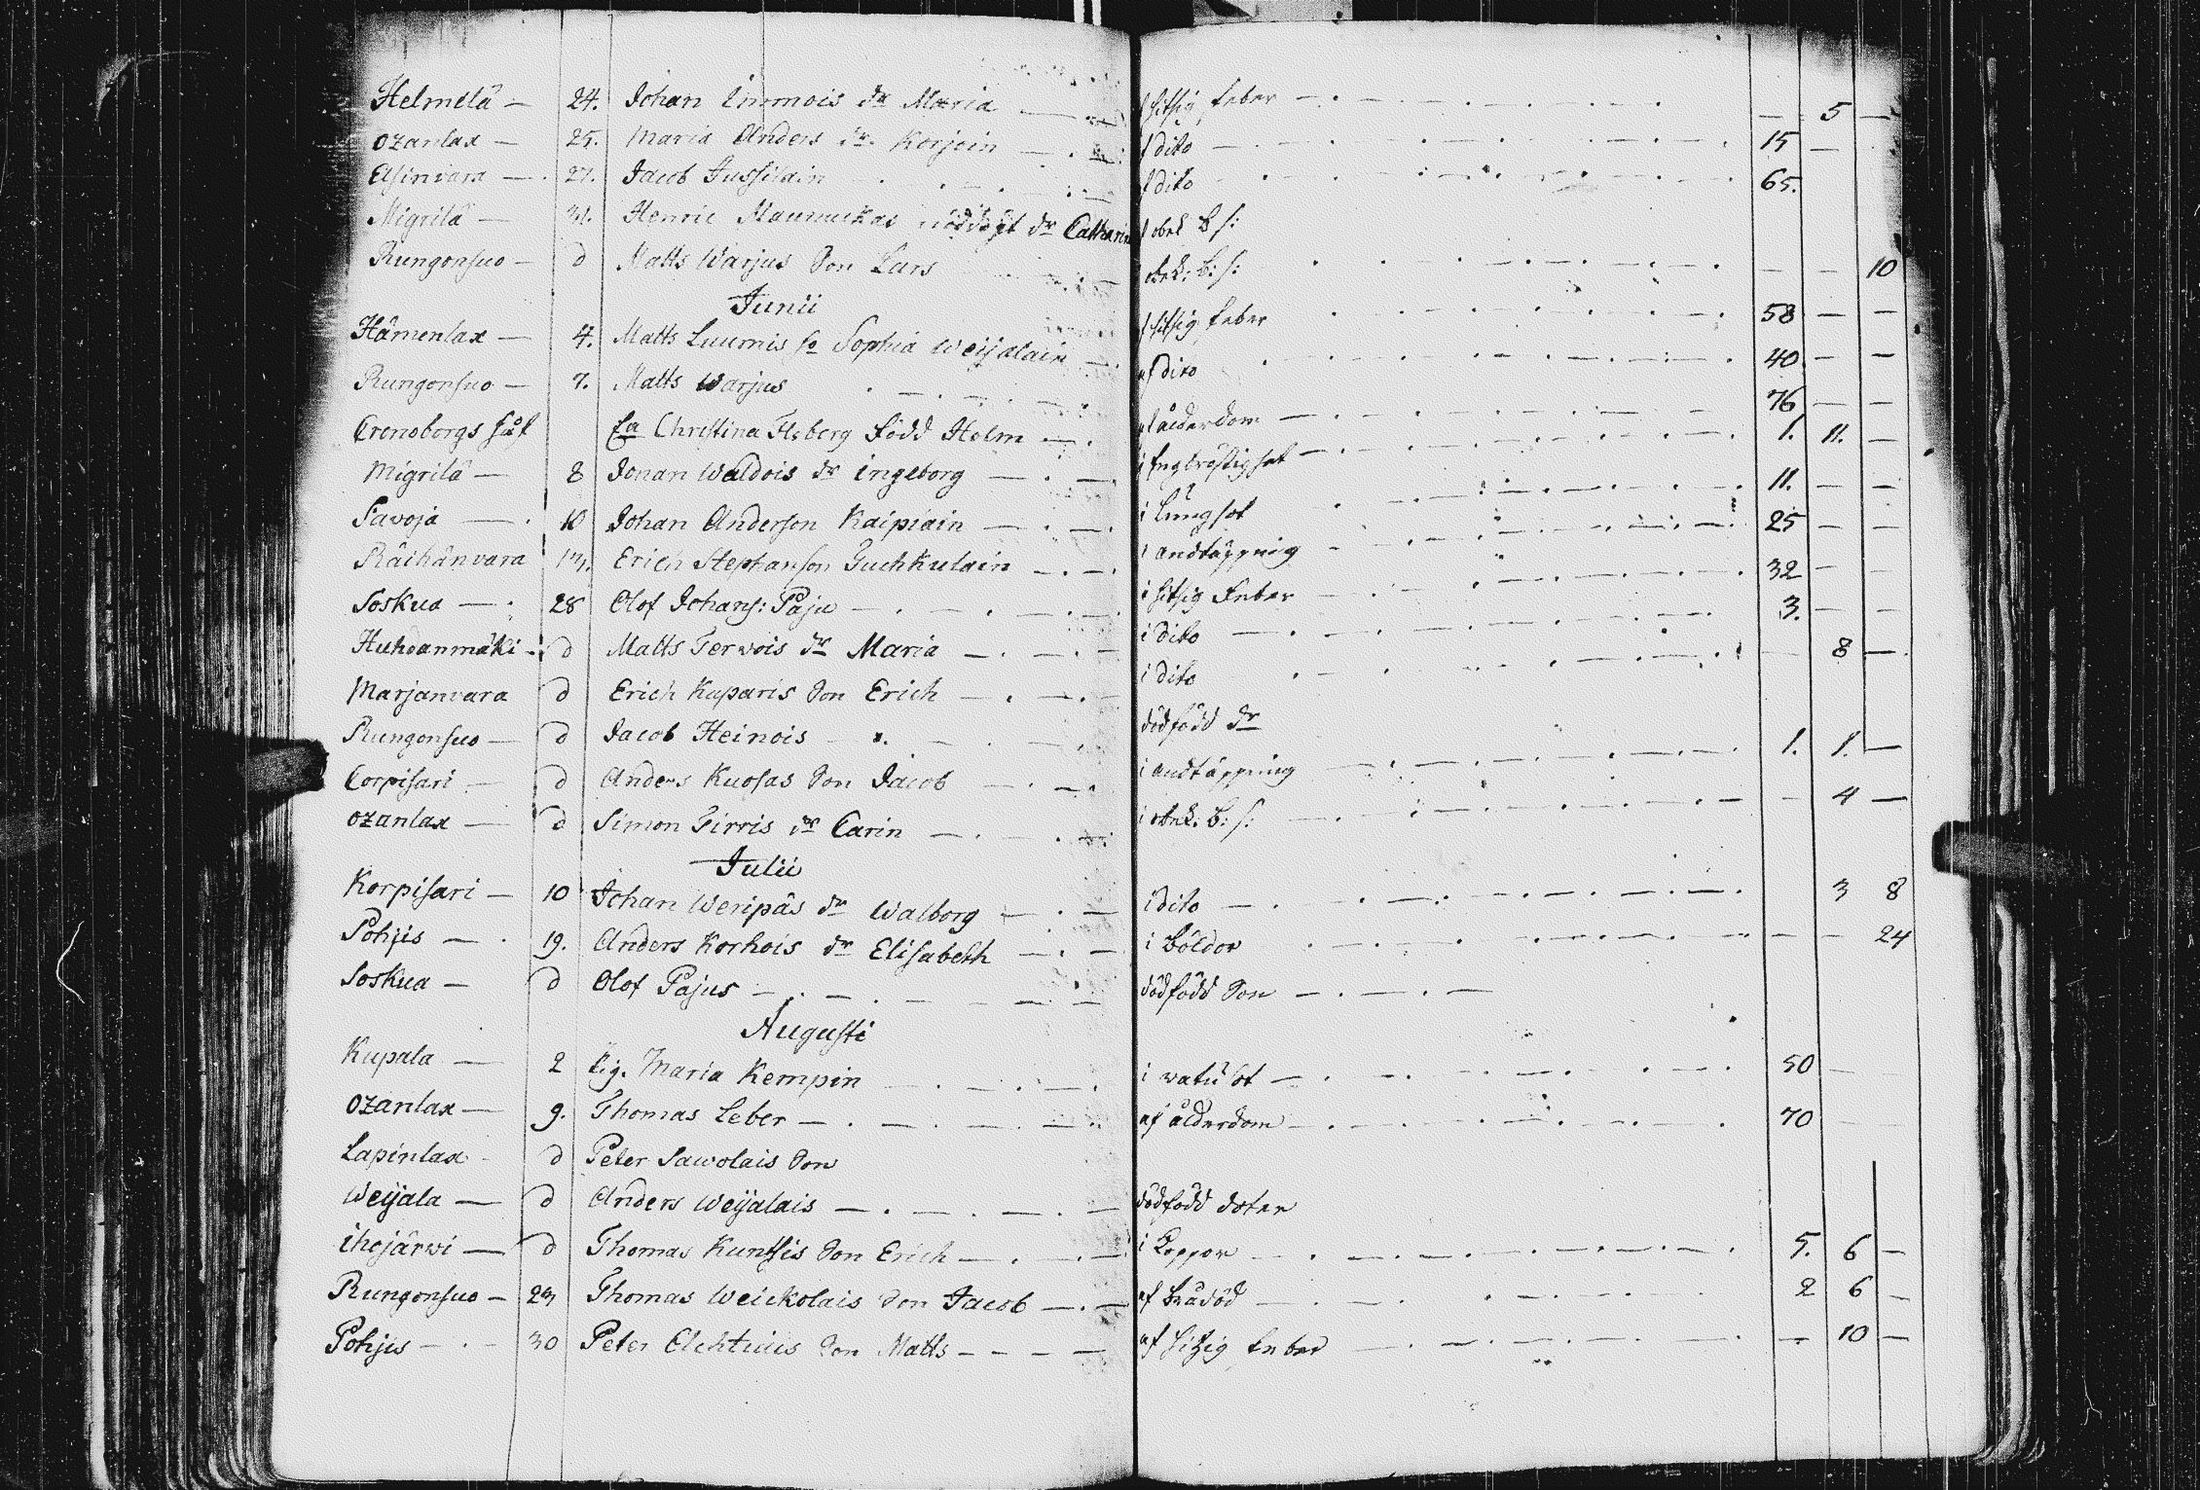 Helmelä — 24. Johan Immois dr Maria — hitsig feber — 5 —
Ozanlax — 25. Maria Anders dr. Korjoin — af dito — 15 —
Elsinvara — 27. Jacob Jussilain — af dito — 65.
Migrilä — 31. Henric Maunukas nöddöpt dr Catharin af obek B s:
Rungonsuo — d Matts Warjus Son Lars — obek: b: s: — — 10
Junii
Hämenlax — 4. Matts Luumis Sa Sophia Weijalain — af hitsig feber — 58 — —
Rungonsuo — 7. Matts Warjus — af dito — 40 — —
Cronoborgs Fa Christina Flsberg Född Holm — af ålderdom — 76 — —
Migrilä — 8 Johan Waldois dr Ingeborg — i Engbröstighet — 1. 11. —
Savoja — 10 Johan Anderson Kaipiain — i Lungsot — 11. — —
Räihänvara 13. Erich Stephanson Guchkulain — i andtäppning — 25 — —
Soskua — 28 Olof Johans: Paju — i hitsig Feber — 32 — —
Huhdanmäki — d Matts Tervois dr Maria — i dito — 3. — —
Marjanvara d Erich Kuparis Son Erich — i dito — 8 —
Rungonsuo — d Jacob Heinois — dödfödd dr
Corpisari — d Anders Kuosas Son Jacob — i andtäppning — 1. 1. —
Ozanlax — d Simon Tirris dr Carin — i obek. B: s: — — 4 —
Julii
Korpisari — 10 Johan Weripäs dr Walborg — i dito — 3 8
Pohjis — 19. Anders Korhois dr Elisabeth — i Böldor — — — 24
Soskua — d Olof Pajus — dödfödd Son —
Augusti
Kupala — 2 Eig. Maria Kempin — i watusot — 50 —
Ozanlax — 9. Thomas Leber — af ålderdom — 70 — —
Lapinlax d Peter Sawolais Son
Weijala — d Anders Weijalais — dödfödd doter
Ihojärwi — d Thomas Kuntsis Son Erich — i Koppor — 5. 6 —
Rungonsuo — 23 Thomas Weickolais Son Jacob — af Brådöd — 2 6 —
Pohjis — 30 Peter Ackticus Son Matts — af hitzig feber — — 10 —